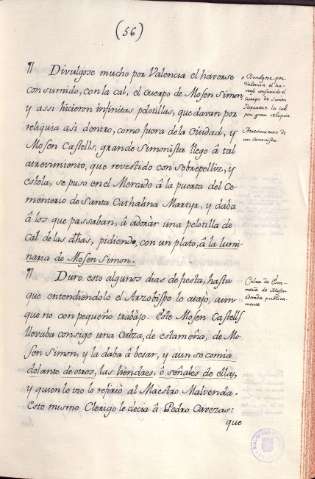 (56)
¶ Divulgose mucho por Valencia el haverse
consumido, con la cal, el cuerpo de Mosen Simon
y assi hicieron infinitas pelotillas, que davan por
reliquia asi dentro, como fuera de la Ciudad, y
Mosen Castells, grande Simonista llegó á tal
atrevimiento, que revestido con Sobrepelliz, y
estola, se puso en el Mercado á la puerta del Ce-
menterio de Santa Cathalina Martyr, y daba
á los que passaban, á adorar una pelotilla de
Cal de las dhas, pidiendo, con un plato, á la lumi-
naria de Mosen Simon.
¶ Duró esto algunos dias de fiesta, hasta
que entendiendolo el Arzobispo lo atajo, aun-
que no con pequeño trabajo. Este Mosen Castells
llevaba consigo una de estameña, de Mo-
sen Simon, y la daba á besar, y aun se comia
delante de otros, las ó señales de ella,
y quien le vio lo refirió al Maestro Malvenda.
Este mismo Clerigo le decia á Pedro Cavezas:
que
Divulgose por
Valencia el ha-
verse consumido el
cuerpo de Simon
la cal
por gran reliquia
Atrevimiento de
un simonista